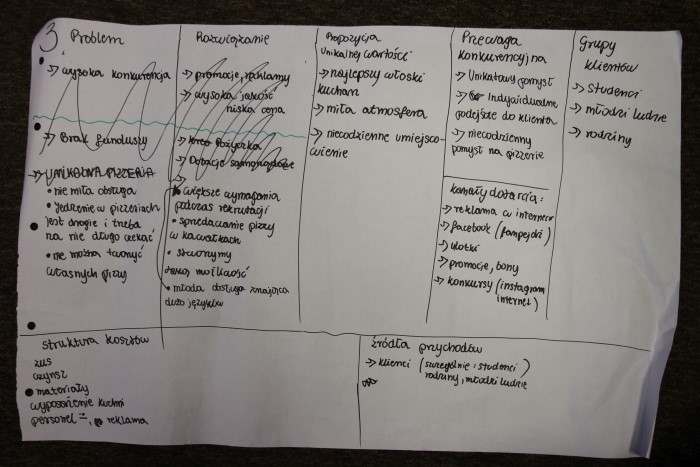 3. Problem
→ wysoka konkurencja
→ Brak funduszy
→ UNIKATOWA PIZZERIA
• nie miła obsługa
• Jedzenie w pizzeriach
jest drogie i trzeba
na nie długo czekać
• nie można tworzyć
własnych pizzy
Rozwiązanie
→ promocje, reklamy
→ wysoka jakość
niska cena
→ pożyczka
→ Dotacje samorządowe
• większe wymagania
podczas rekrutacji
• sprzedawanie pizzy
w kawałkach
• stworzymy
taką możliwość
• młoda obsługa znająca
dużo języków
Propozycja
unikalnej wartości
→ najlepszy włoski
kuchan
→ miła atmosfera
→ niecodzienne umiejsco-
wienie
Przewaga
konkurencyjna
→ Unikatowy pomysł
→ Indywidualne
podejście do klienta
→ niecodzienny
pomysł na pizzerie
kanały dotarcia:
→ reklama w internecie
→ facebook (fanpejdż)
→ ulotki
→ promocje, bony
→ konkursy (instagram
internet)
Grupy
klientów
→ studenci
→ młodzi ludzie
→ rodziny
struktura kosztów
zus
czynsz
materiały
wyposażenie kuchni
personel, reklama
źródła przychodów
→ klienci (szczególnie: studenci
rodziny, młodzi ludzie)